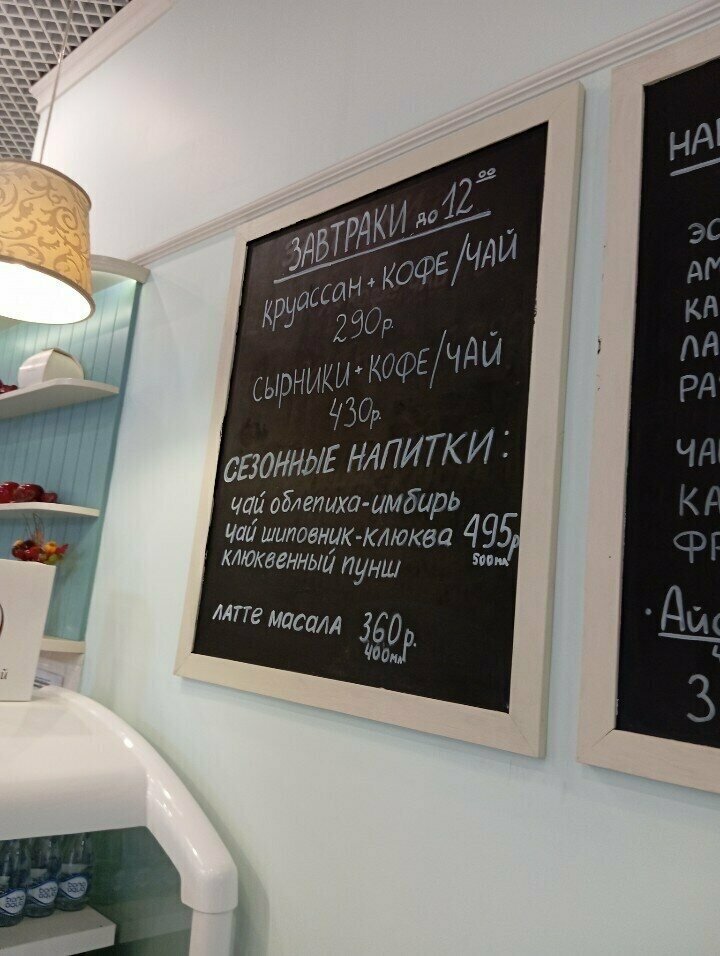 ЗАВТРАКИ до 12⁰⁰
круассан + КОФЕ/ЧАЙ
290р.
СЫРНИКИ + КОФЕ/ЧАЙ
430р.
СЕЗОННЫЕ НАПИТКИ:
чай облепиха-имбирь
чай шиповник-клюква 495р
500мл
клюквенный пунш
ЛАТТЕ МАСАЛА 360р.
400мл
bona aqua